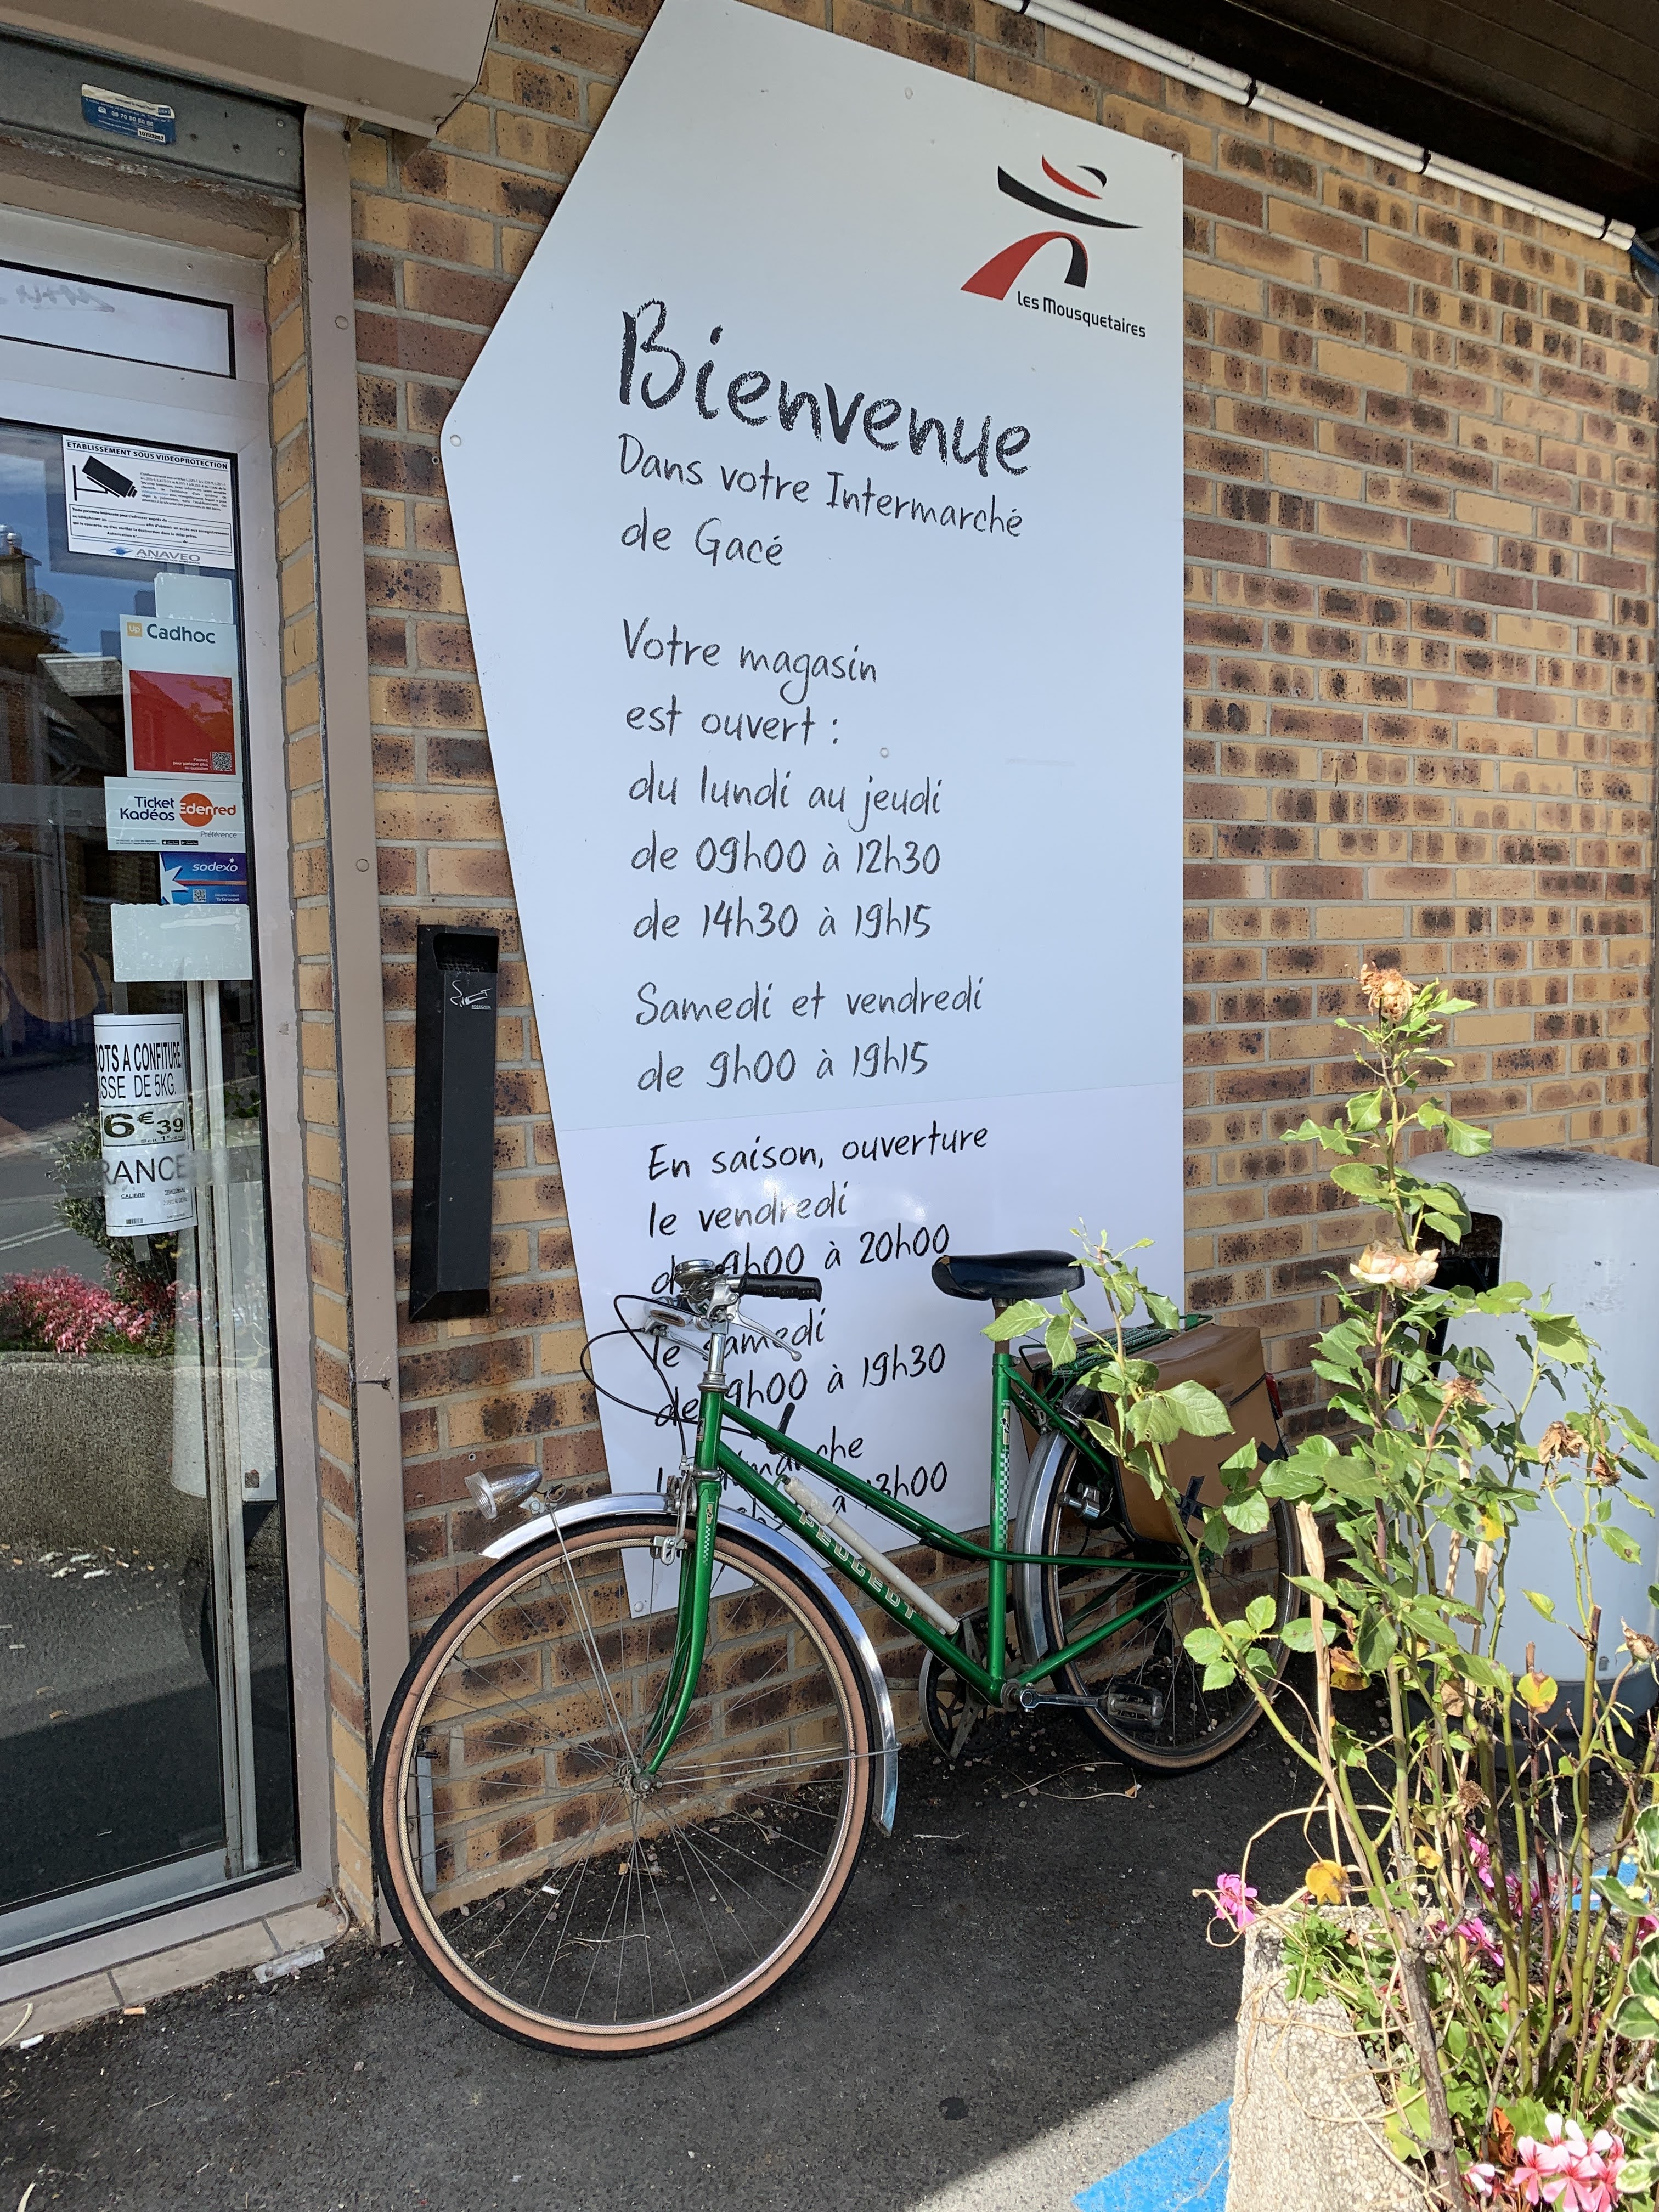 les Mousquetaires
Bienvenue
Dans votre Intermarché
de Gacé
Votre magasin
est ouvert :
du lundi au jeudi
de 09h00 à 12h30
de 14h30 à 19h15
Samedi et vendredi
de 9h00 à 19h15
En saison, ouverture
le vendredi
9h00 à 20h00
le samedi
de 9h00 à 19h30
à 13h00
PEUGEOT
ETABLISSEMENT SOUS VIDEOPROTECTION
ANAVEO
Up Cadhoc
Ticket
Kadéos
Edenred
Préférence
sodexo
OTS A CONFITURE
SSE DE 5KG.
6€39
RANCE
CALIBRE